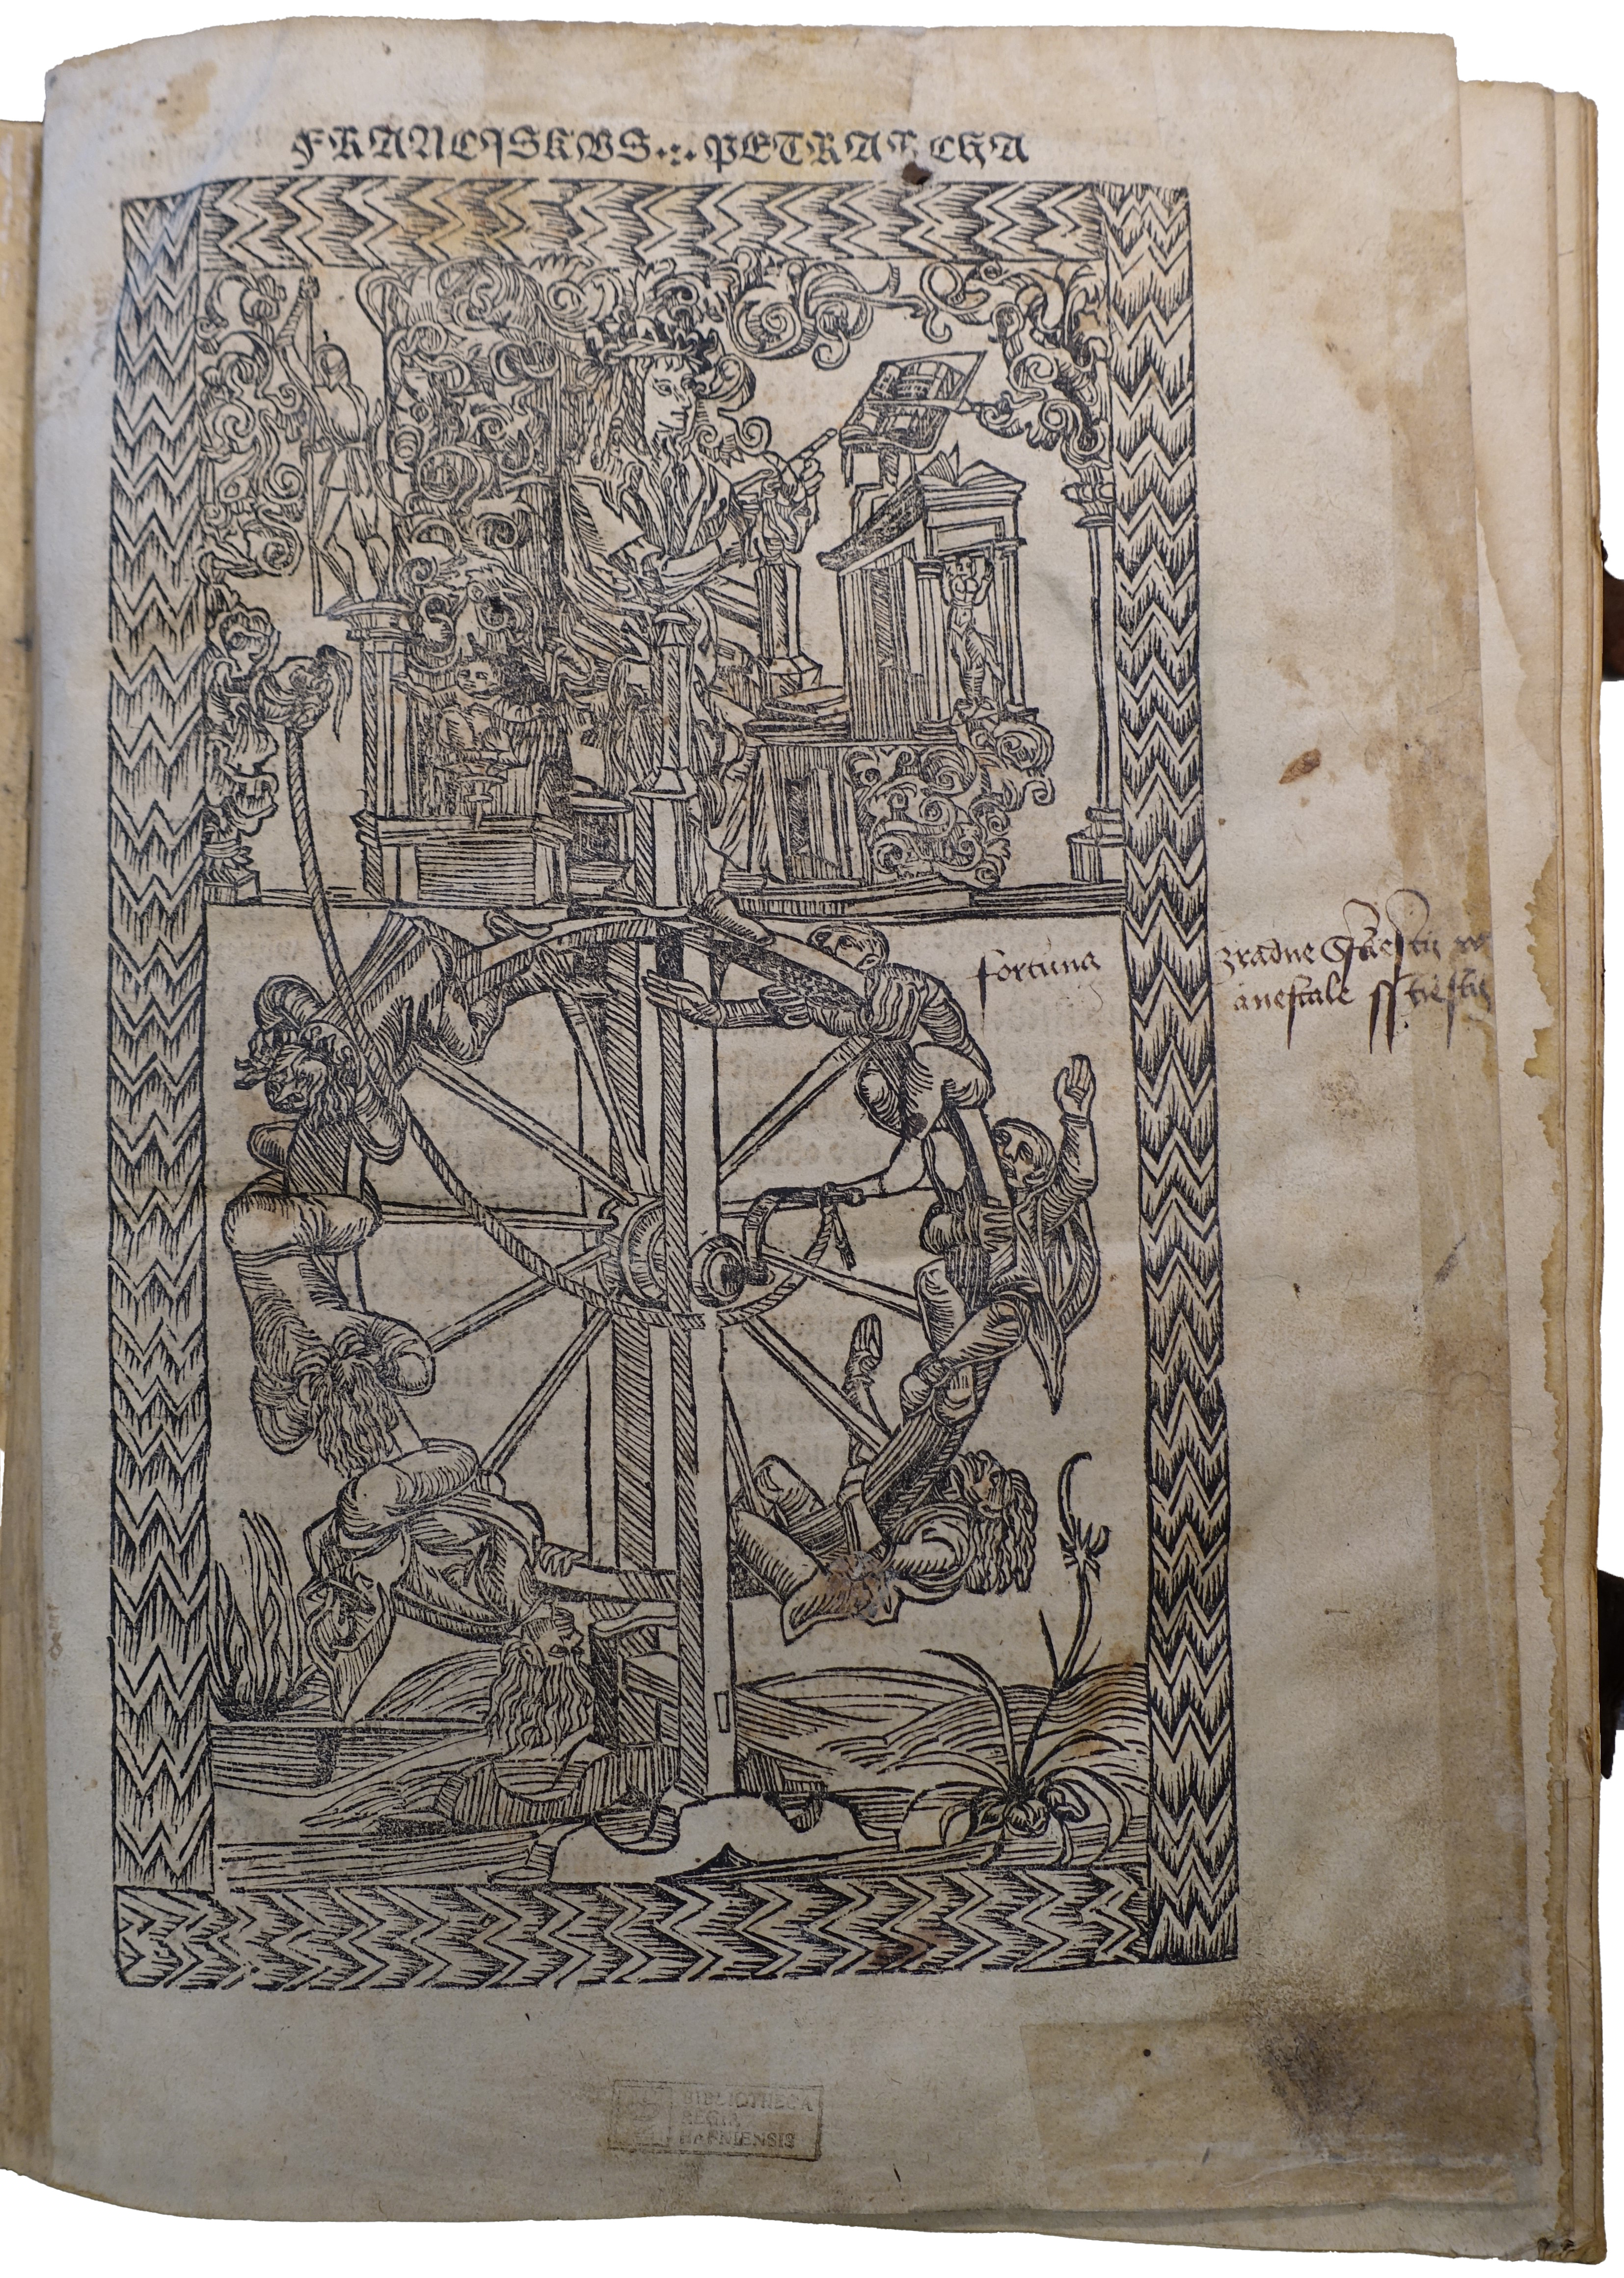 FRANCISKVS PETRARCHA
fortuna
zradne
anestale
BIBLIOTHECA
REGIA
HAFNIENSIS